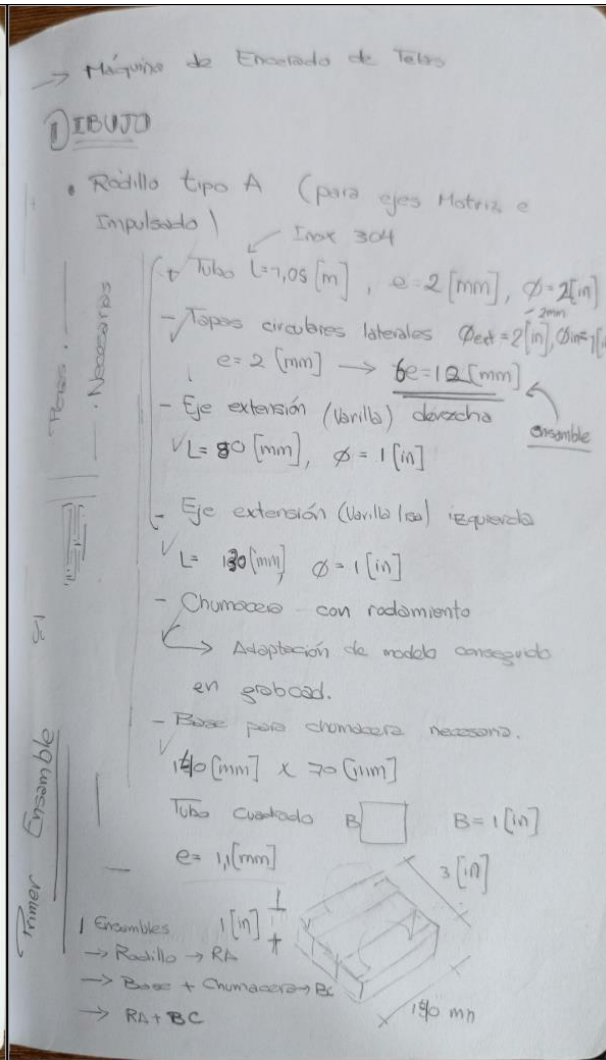 → Máquina de Encerado de Telas
① DIBUJO
• Rodillo tipo A (para ejes Motriz e
Impulsado)
Inox 304
Tubo L=1,05 [m], e=2 [mm], Ø=2[in]
- 2mm
- Tapas circulares laterales Øext=2[in], Øin=1[in
e=2 [mm] → 6e=12 [mm]
ensamble
- Eje extensión (Varilla) derecha
✓ L= 80 [mm], Ø = 1 [in]
- Eje extensión (Varilla liso) izquierda
✓ L= 130 [mm] Ø = 1 [in]
- Chumacera con rodamiento
→ Adaptación de modelo conseguido
en grabcad.
- Base para chumacera necesaria.
✓ 140 [mm] x 70 [mm]
Tubo cuadrado B B = 1 [in]
e= 1,1 [mm]
3 [in]
1 [in]
mm
Ensambles
→ Rodillo → RA
→ Base + Chumacera → BC
→ RA + BC
Necesarios
Primer Ensamble